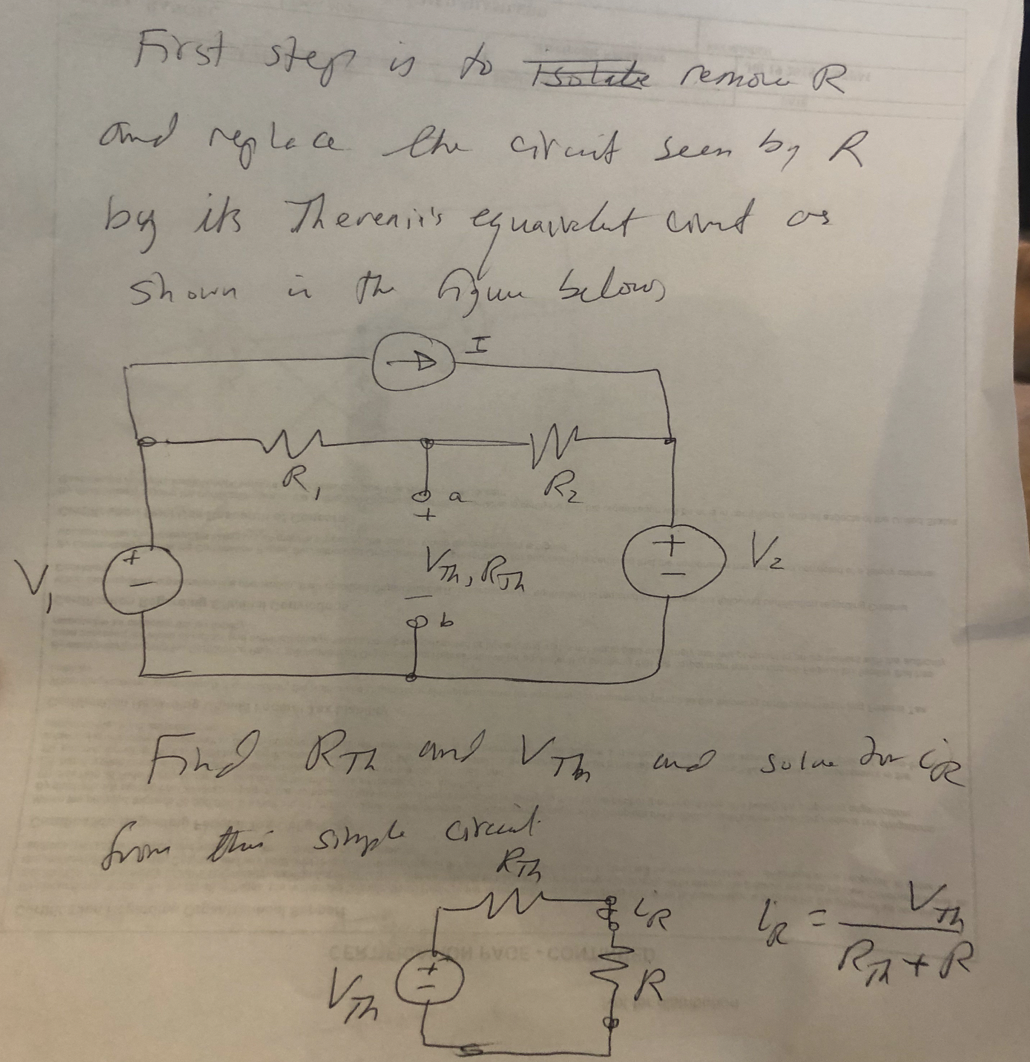 First step is to isolate remove R
and replace the circuit seen by R
by its Thevenin's equivalent circuit as
shown in the figure below
I
R1
R2
a
+
V1
+
-
VTh, RTh
+
-
V2
-
b
Find RTh and VTh and solve for iR
from this simple circuit
RTh
iR
iR = VTh / (RTh + R)
VTh
+
-
R